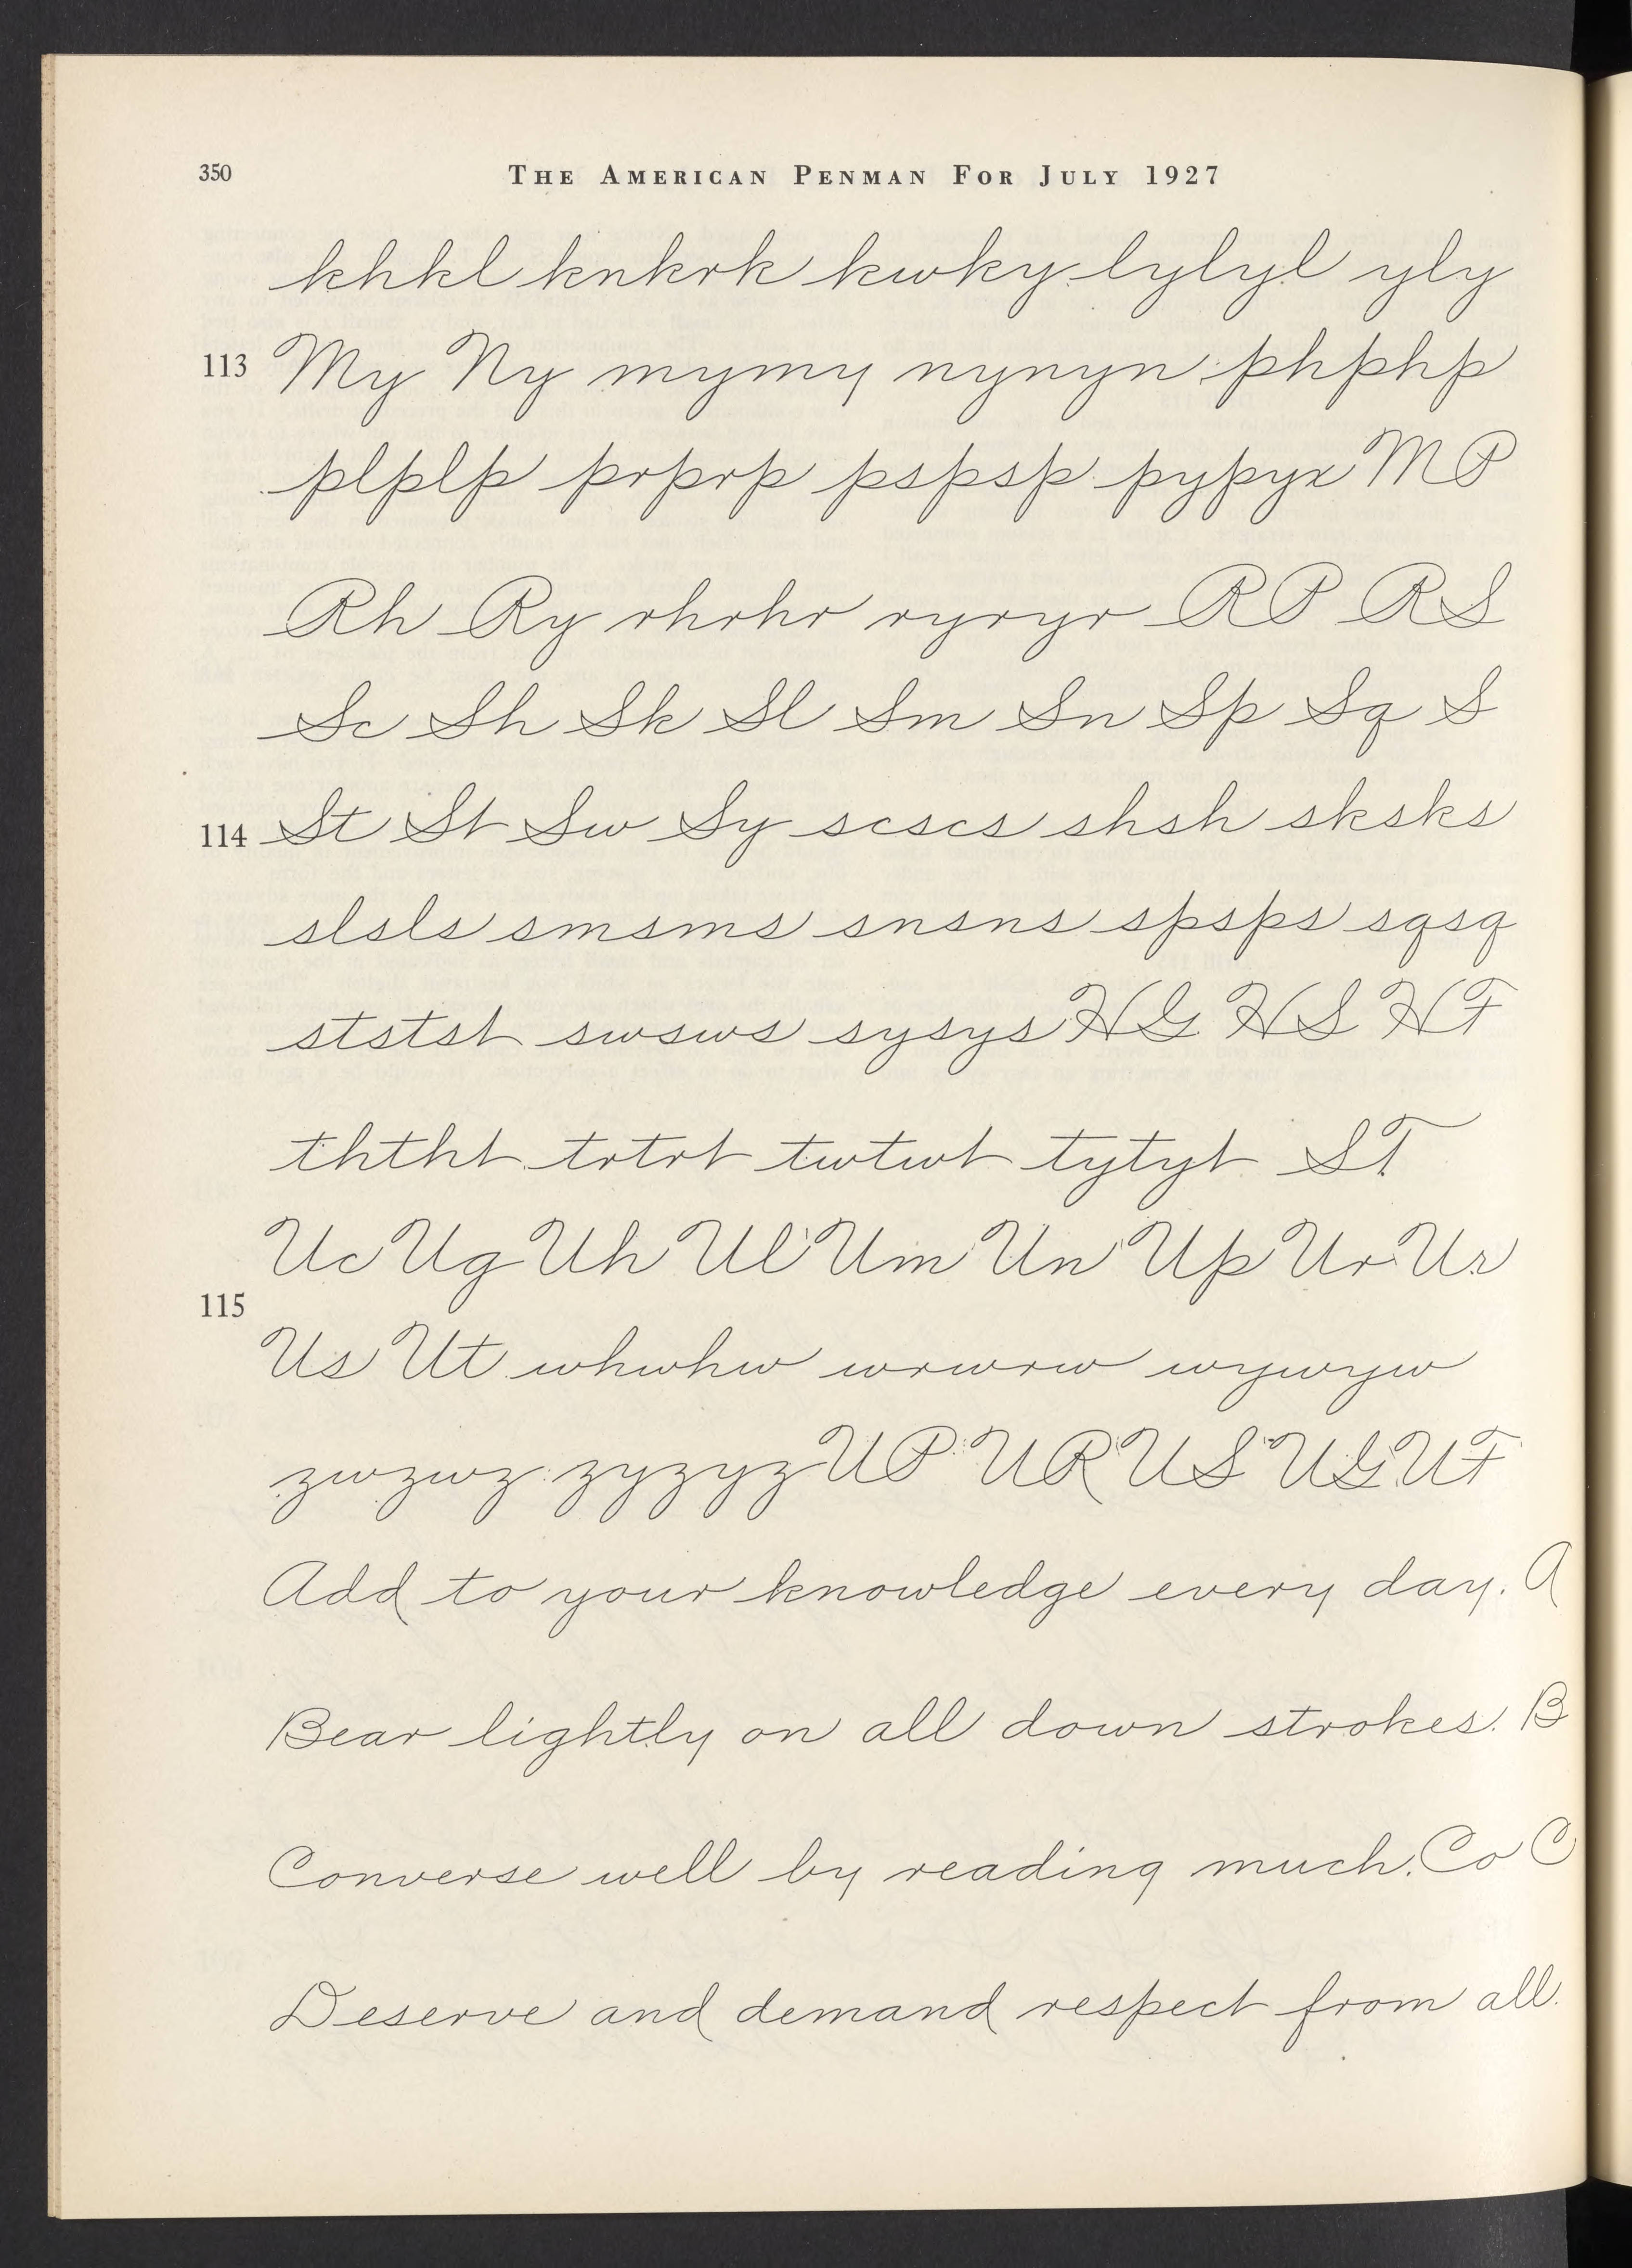 350 THE AMERICAN PENMAN FOR JULY 1927
khkl knkrk kwky lylyl yly
113 My Ny mymy nynyn phphp
plplp prprp pspsp pypyx M P
Rh Ry rhrhr ryryr R P R S
Sc Sh Sk Sl Sm Sn Sp Sq S
114 St St Sw Sy scscs shsh sksks
slsls smsms snsns spsps sqsq
ststst swsws sysys H G H S H F
ththt trtrt twtwt tytyt S T
Uc Ug Uh Ul Um Un Up Ur Ur
115
Us Ut whwhw wrwrw wywyw
zwzwz zyzyz U P U R U S U G U F
Add to your knowledge every day. A
Bear lightly on all down strokes. B
Converse well by reading much. Co C
Deserve and demand respect from all.